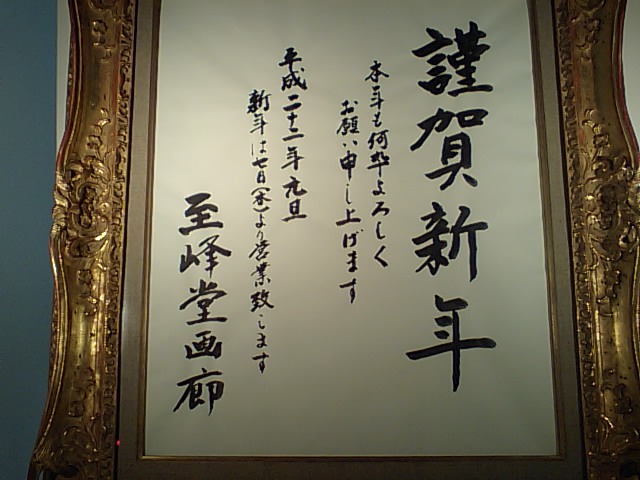 謹賀新年
本年も何卒よろしく
お願い申し上げます
平成二十二年元旦
新年は七日(木)より営業致します
至峰堂画廊